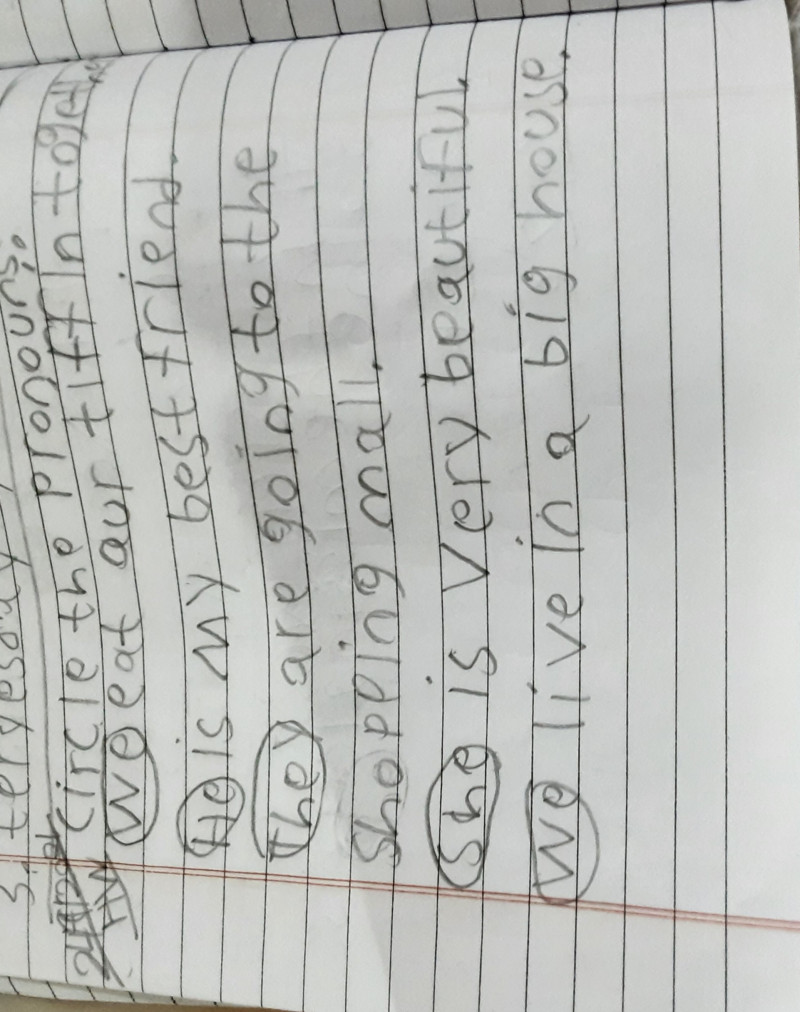 3.
Circle the pronouns.
We eat aur tiffin togethe
He is my best friend.
They are going to the
Shopping mall.
She is very beautiful.
We live in a big house.